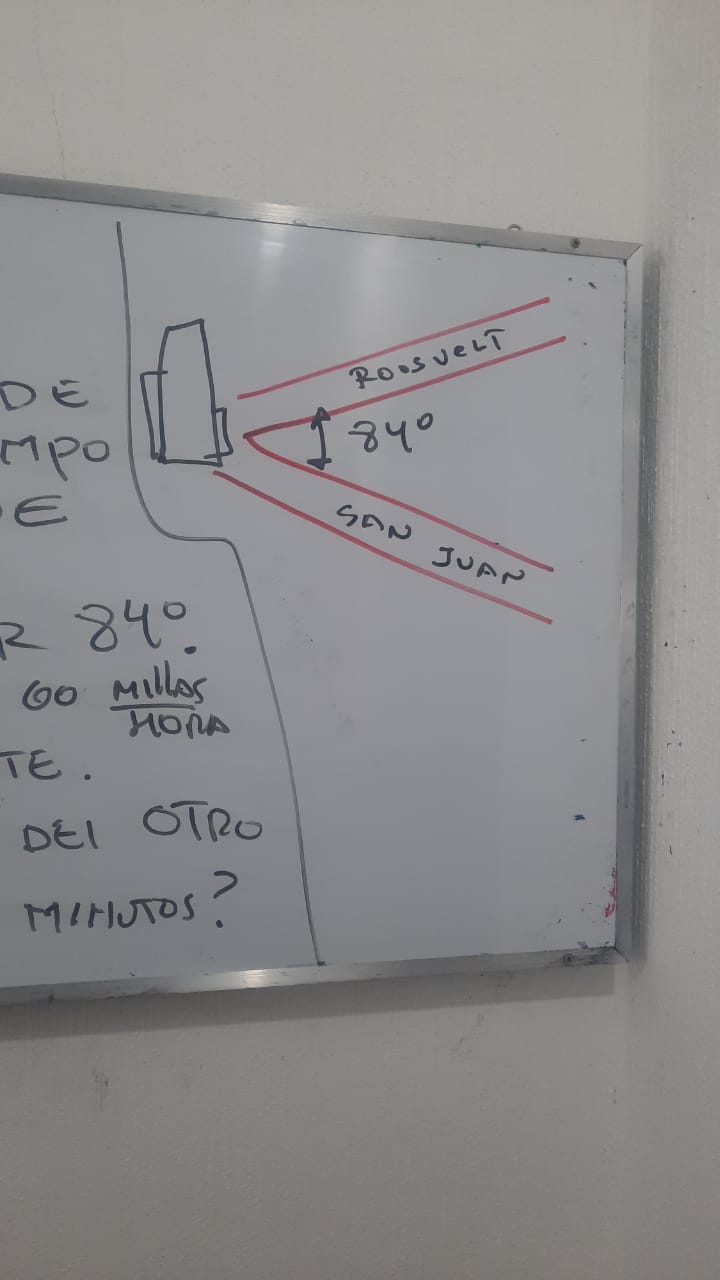 DE
MPO
E
R 84º.
60 MILLAS
HORA
TE.
DEL OTRO
MINUTOS?
ROOSVELT
84º
SAN JUAN